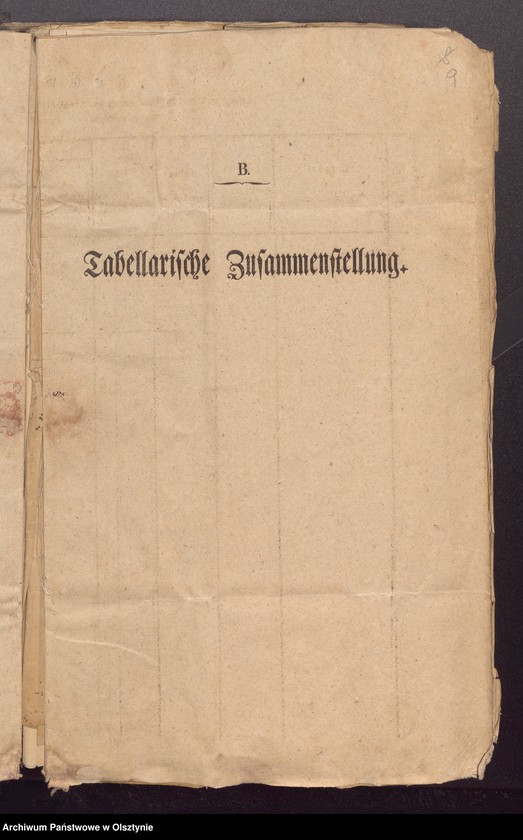 8
9
B.
Tabellarische Zusammenstellung.
Archiwum Państwowe w Olsztynie